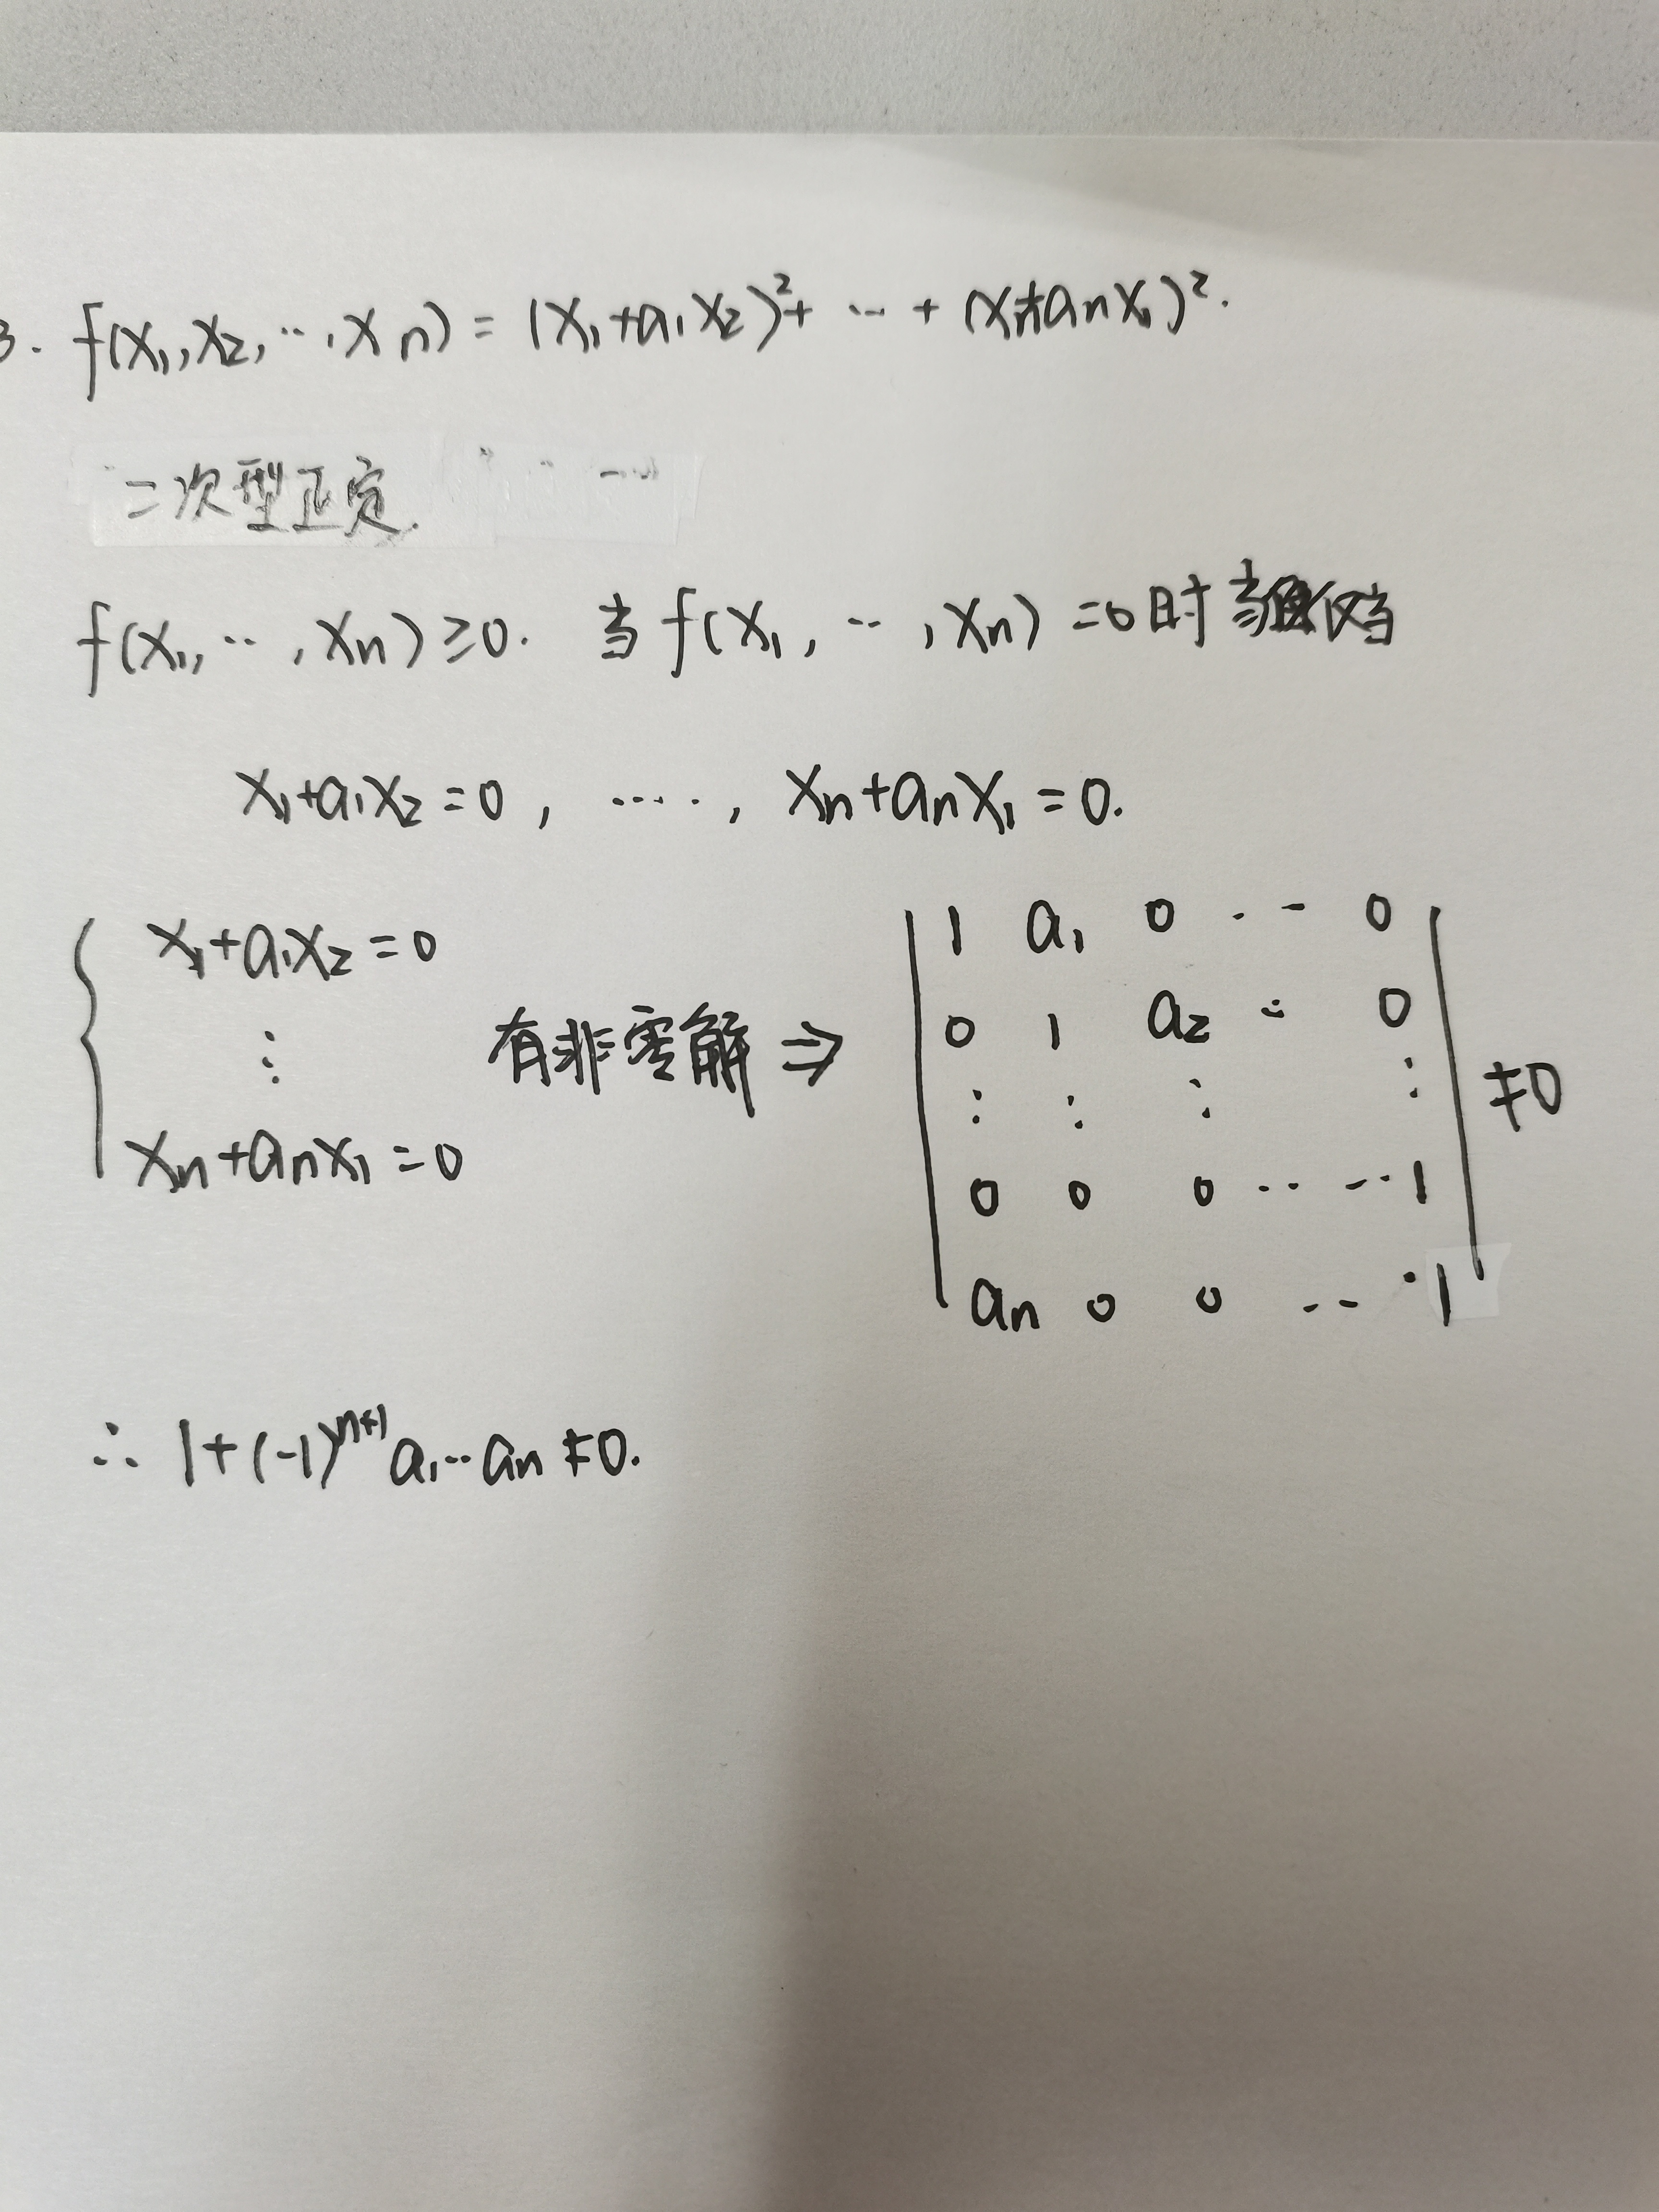 3. f(x₁,x₂,…,xn) = (x₁+a₁x₂)²+ … + (xn+anx₁)².
二次型正定.
f(x₁,…,xn)≥0. 当f(x₁,…,xn)=0时 当且仅当
x₁+a₁x₂=0, ……, xn+anx₁=0.
x₁+a₁x₂=0
⋮
xn+anx₁=0
有非零解 ⇒
1 a₁ 0 … 0
0 1 a₂ … 0
⋮ ⋮ ⋮ ⋮
0 0 0 … … 1
an 0 0 … 1
≠0
∴ 1+(-1)ⁿ⁺¹a₁…an≠0.